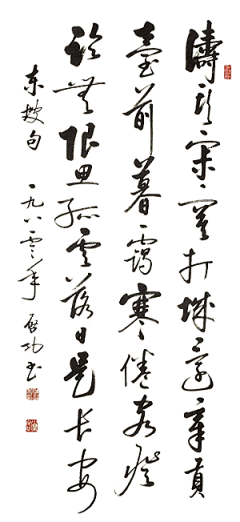 濤頭寂寞打城還章貢
臺前暮靄寒倦客登
臨無限思孤雲落日是長安
東坡句 一九八零年 啟功書